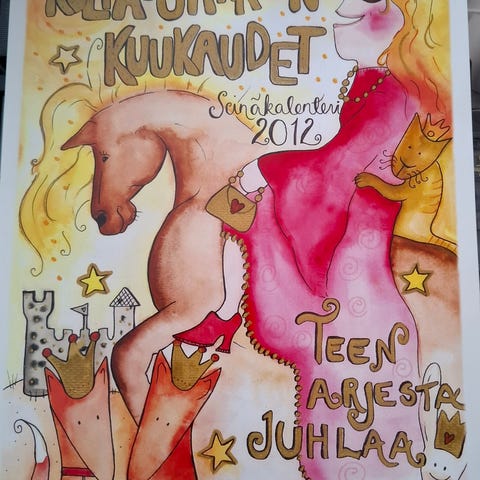 KUUKAUDET
Seinäkalenteri
2012
TEEN
ARJESTA
JUHLAA